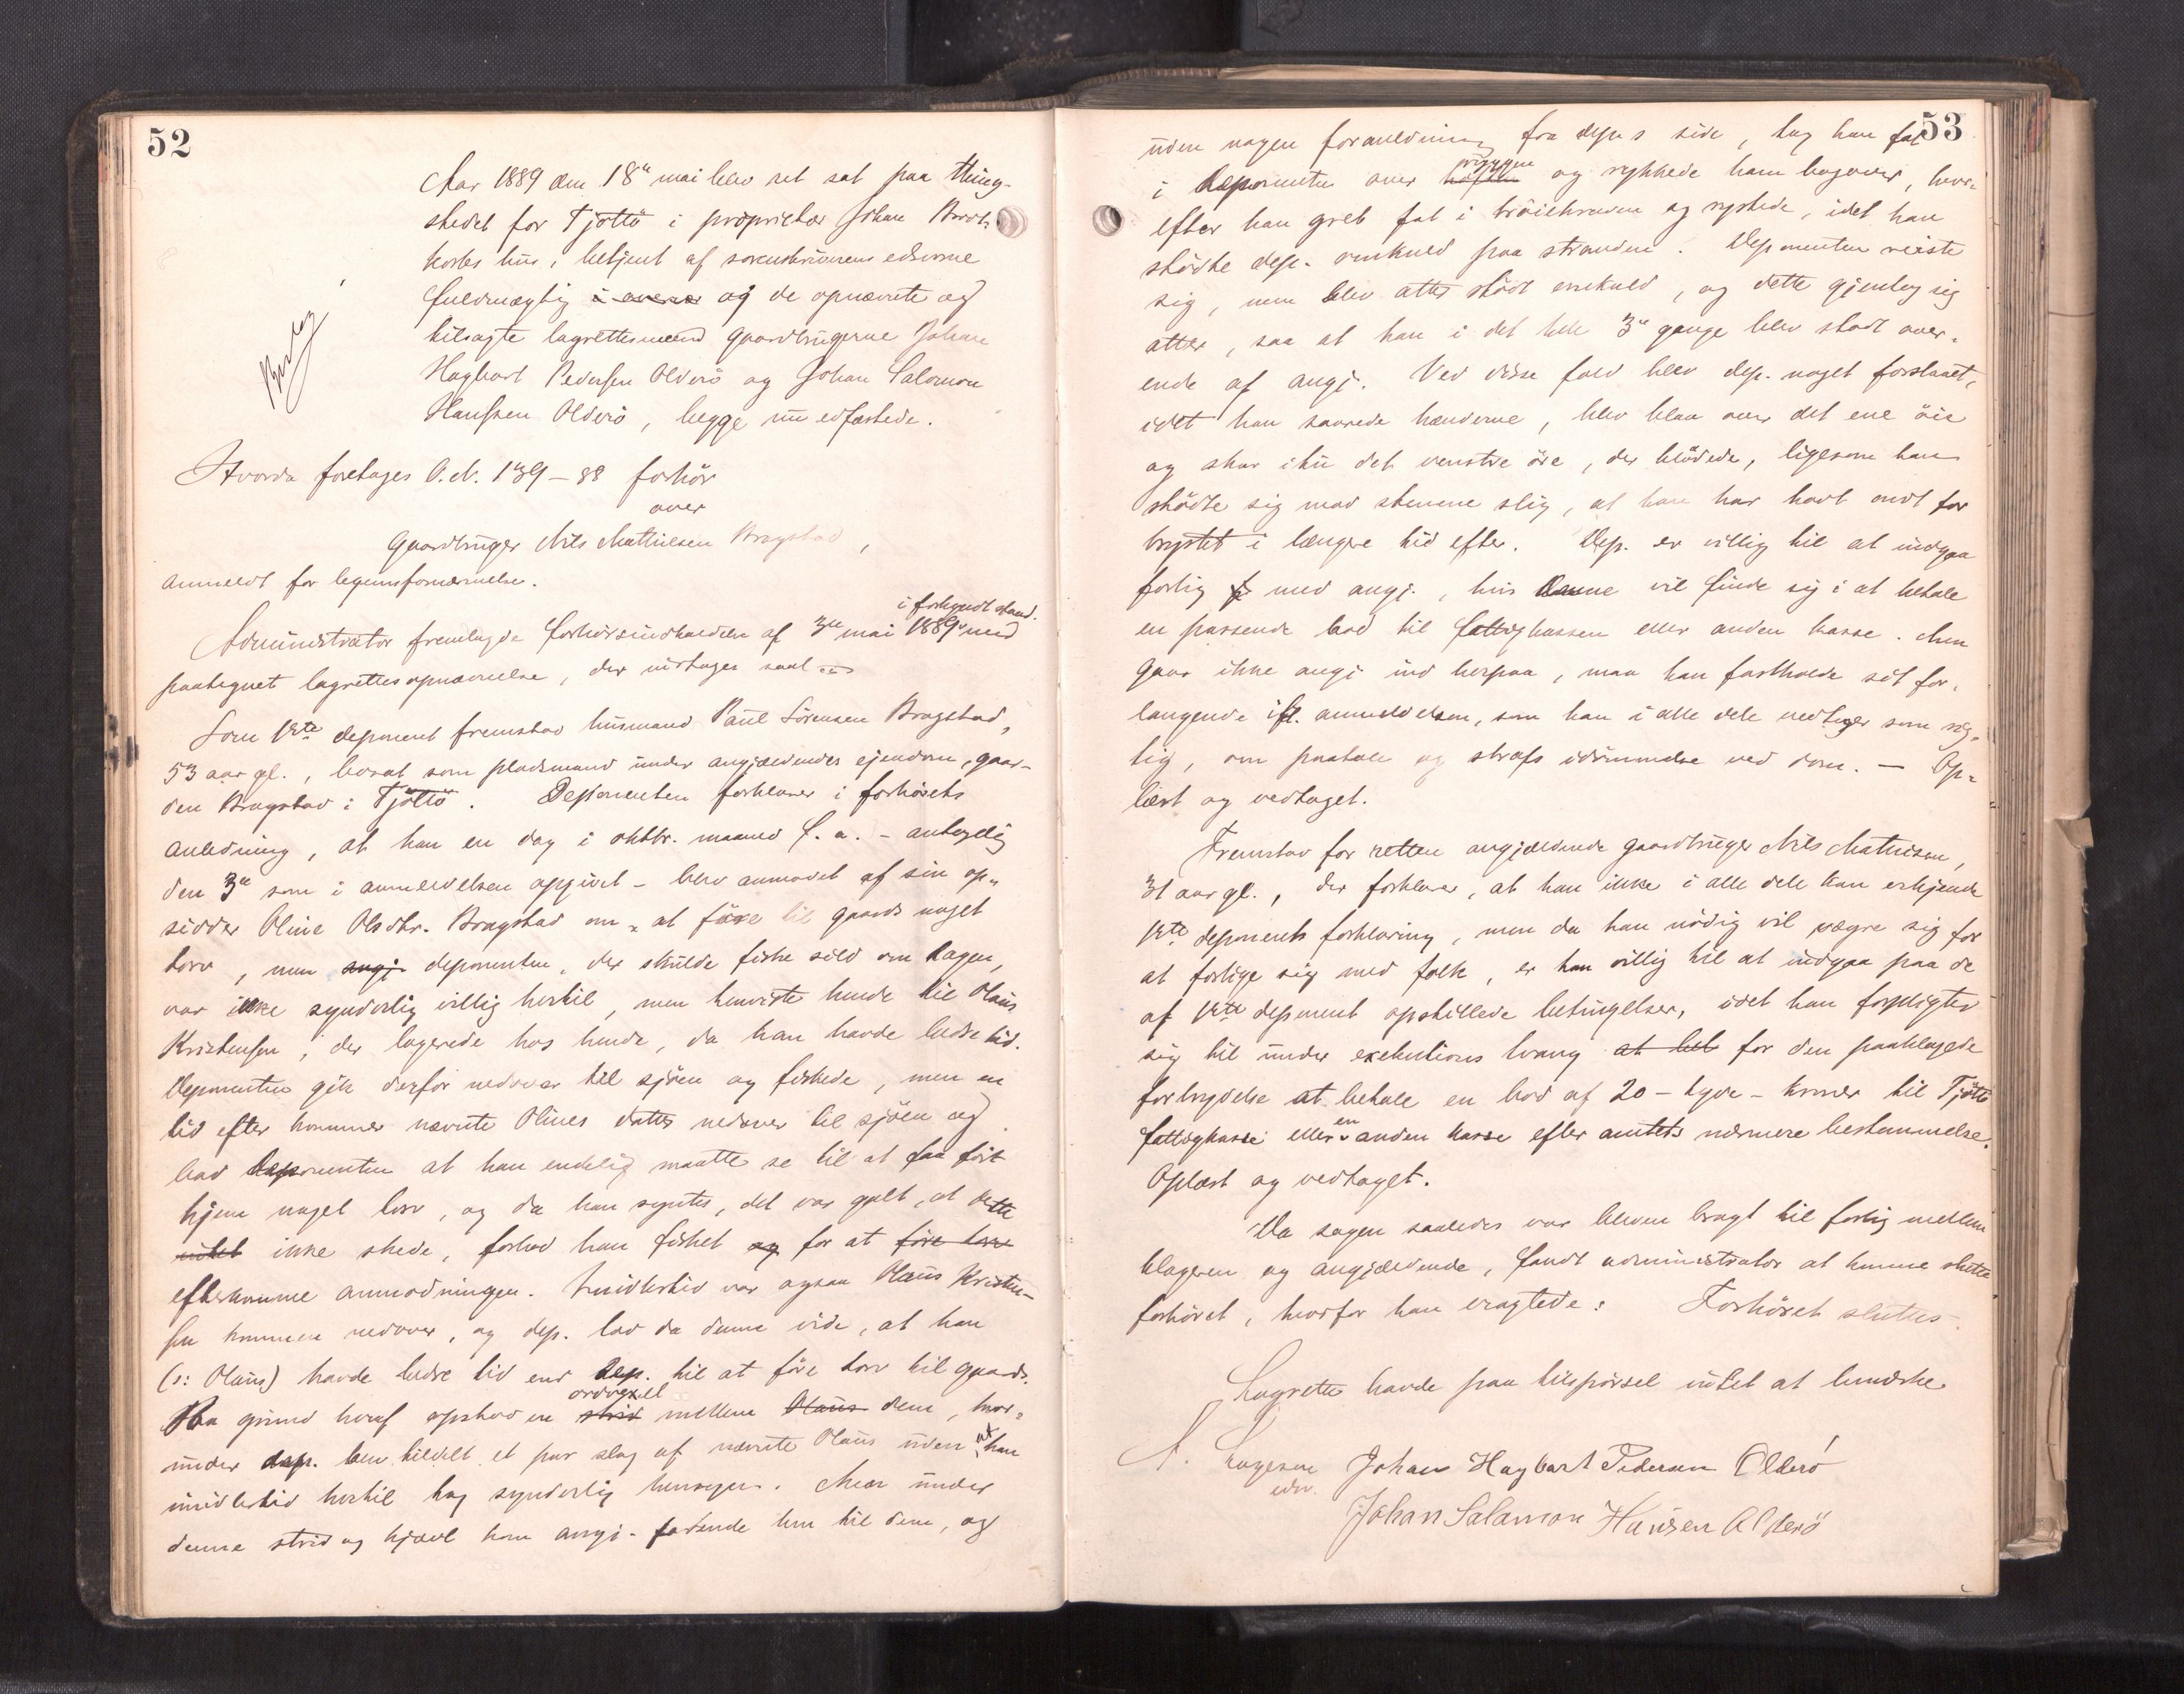 52
Aar 1889 den 18de mai blev ret sat paa thing-
stedet for Tjøttø i proprietær Johan Brod-
korbs hus, betjent af sorenskriverens edsvorne
fuldmægtig i overvær og de opnævnte og
tilsagte lagrettesmænd gaardbrugerne Johan
Hagbart Pedersen Olderø og Johan Salomon
Hanssen Olderø, begge nu edfæstede.
Hvorda foretages O. N. 139-88 forhør
over
gaardbruger Nils Mathiesen Bragstad,
anmeldt for legemsfornærmelse.
i forkyndt stand.
Administrator fremlagde forhørsindkaldelse af 3die mai 1889 med
paategnet lagrettesopnævnelse, der indtages saal.
Som 1ste deponent fremstod husmand Paul Sørensen Bragstad,
53 aar gl., bosat som pladsmand under angjældendes ejendom, gaar-
den Bragstad i Tjøttø. Deponenten forklarer i forhørets
anledning, at han en dag i oktbr. maaned f. a. - antagelig
den 3die som i anmeldelsen opgivet - blev anmodet af sin op-
sidder Oline Olsdtr. Bragstad om at føre til gaards noget
torv, men angj. deponenten, der skulde fiske sild om dagen,
var ikke synderlig villig hertil, men henviste hende til Olaus
Kristensen, der lagerede hos hende, da han havde bedre tid.
Deponenten gik derfor nedover til sjøen og fiskede, men en
tid efter kommer nævnte Olines datter nedover til sjøen og
bad deponenten at han endelig maatte se til at faa ført
hjem noget torv, og da han syntes, det var galt, at dette
intet ikke skede, forlod han fisket og for at føre torv
efterkomme anmodningen. Imidlertid var ogsaa Olaus Kristen-
sen kommen nedover, og dep. lod da denne vide, at han
(ɔ: Olaus) havde bedre tid end dep. til at føre torv til gaards.
ordvexel
Paa grund heraf opstod en strid mellem Olaus dem, hvor-
under dep. blev tildelt et par slag af nævnte Olaus uden at han
imidlertid hertil tog synderlig hensyn. Men under
denne strid og kjævl kom angj. farende hen til dem, og
53
uden nogen foranledning fra dep.s side, tog han fat
ryggen
i deponenten over hoften og rykkede ham bagover, hvor-
efter han greb fat i trøiekraven og rystede, idet han
stødte dep. omkuld paa stranden. Deponenten reiste
sig, men blev atter stødt omkuld, og dette gjentog sig
atter, saa at han i det hele 3de gange blev stødt over-
ende af angj. Ved disse fald blev dep. noget forslaaet,
idet han saarede hænderne, blev blaa over det ene øie
og skar itu det venstre øre, der blødede, ligesom han
stødte sig mod stenene slig, at han har havt ondt for
brystet i længere tid efter. Dep. er villig til at indgaa
forlig f med angj., hvis denne vil finde sig i at betale
en passende bod til fattigkassen eller anden kasse. Men
gaar ikke angj. ind herpaa, maa han fastholde sit for-
langende ifl. anmeldelsen, som han i alle dele vedtager som rig-
tig, om paatale og strafs idømmelse ved dom. - Op-
læst og vedtaget.
Fremstod for retten angjældende gaardbruger Nils Mathisen,
31 aar gl., der forklarer, at han ikke i alle dele kan erkjende
1ste deponents forklaring, men da han nødig vil vægre sig for
at forlige sig med folk, er han villig til at indgaa paa de
af 1ste deponent opstillede betingelser, idet han forpligter
sig til under exekutions tvang at bet for den paaklagede
forbrydelse at betale en bod af 20 - tyve - kroner til Tjøttø
fattigkasse eller en anden kasse efter amtets nærmere bestemmelse.
Oplæst og vedtaget.
Da sagen saaledes var bleven bragt til forlig mellem
klageren og angjældende, fandt administrator at kunne slutte
forhøret, hvorfor han eragtede: Forhøret sluttes.
Lagretten havde paa tilspørsel intet at bemærke
Johan Hagbart Pedersen Olderö
edsv.
Johan Salamon Hansen Olderö